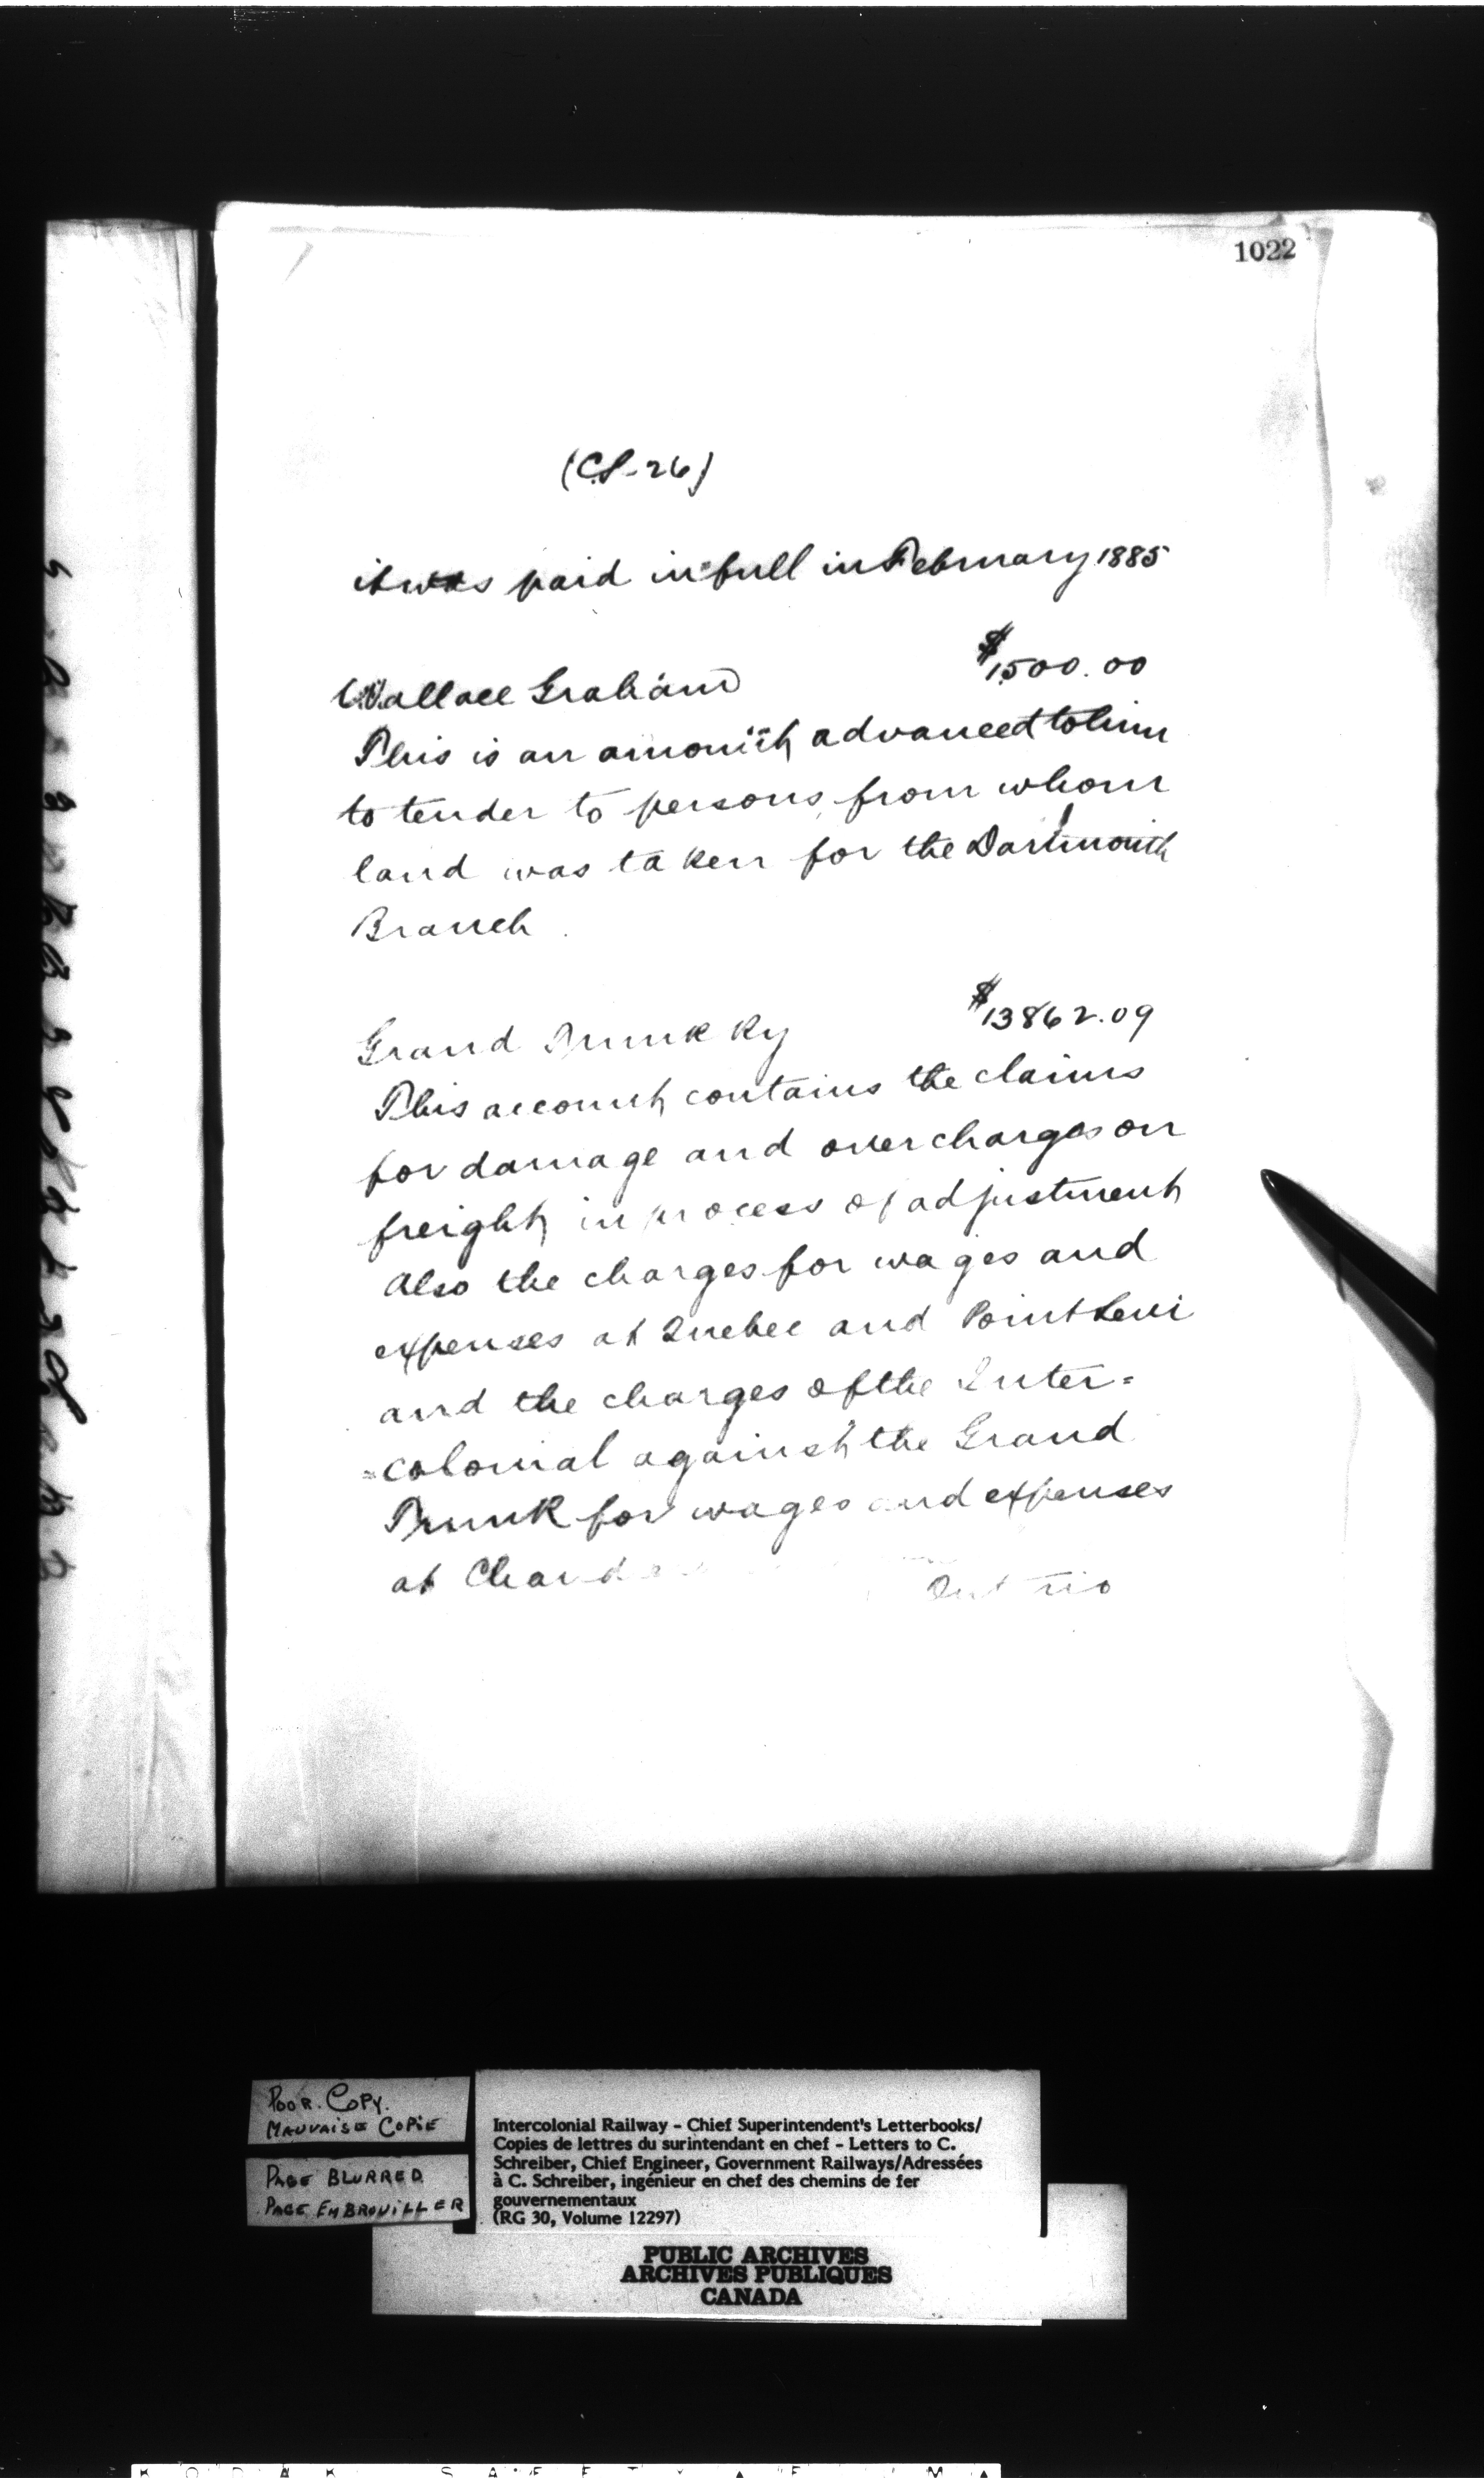 1022
(C.S-26)
it was paid in full in February 1885
Wallace Graham $1500.00
This is an amount advanced to him
to tender to persons from whom
land was taken for the Dartmouth
Branch.
Grand Trunk Ry $13862.09
This account contains the claims
for damage and overcharges on
freight in process of adjustment
Also the charges for wages and
expenses at Quebec and Point Levi
and the charges of the Inter=
=colonial against the Grand
Trunk for wages and expenses
at
POOR. COPY.
MAUVAISE COPIE
PAGE BLURRED
PAGE EMBROUILLER
Intercolonial Railway - Chief Superintendent's Letterbooks/
Copies de lettres du surintendant en chef - Letters to C.
Schreiber, Chief Engineer, Government Railways/Adressées
à C. Schreiber, ingénieur en chef des chemins de fer
gouvernementaux
(RG 30, Volume 12297)
PUBLIC ARCHIVES
ARCHIVES PUBLIQUES
CANADA